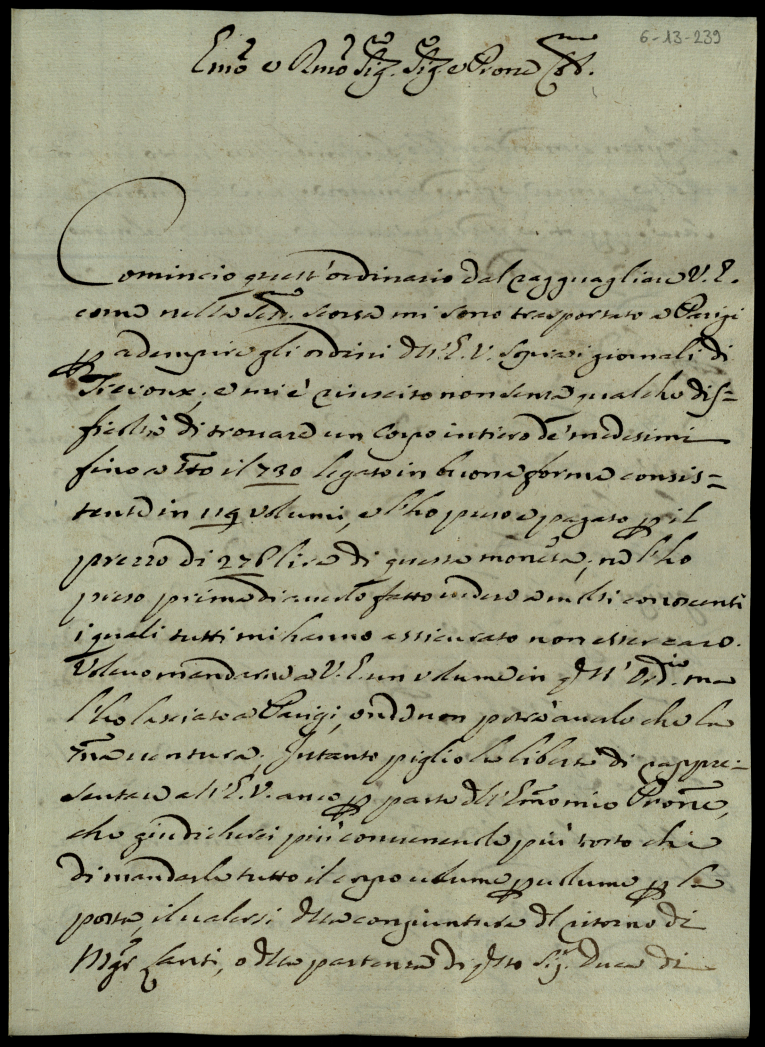 6-13-239
Emo e Rmo Sig. Sig e Prone
Comincio quest'ordinario dal ragguagliare V. E.
come nella Setta. scorsa mi sono trasportato a Parigi
p adempire gli ordini dell'E. V. sopra i giornali di
e mi è riuscito non senza qualche dif=
ficoltà di trovare un Corpo intiero de' medesimi
fino a tto il 730 legato in buona forma consis=
tente in 119 volumi, e l'ho preso e pagato p il
prezzo di 276 lire di questa moneta; ne l'ho
preso prima di averlo fatto vedere a molti conoscenti
i quali tutti mi hanno assicurato non esser caro.
Volevo mandarne a V. E. un volume in qst' Ordrio. ma
l'ho lasciato a Parigi, onde non potrà averlo che la
ttna ventura; Intanto piglio la libertà di rappre=
sentare all'E. V. anco p parte dell'Emo mio Prone,
che giudicherei più convenevole più tosto che
di mandarle tutto il corpo volume p volume p la
posta, il valersi della congiuntura del ritorno di
Mgr Lanti, o della partenza di qsto Sig. Duca di